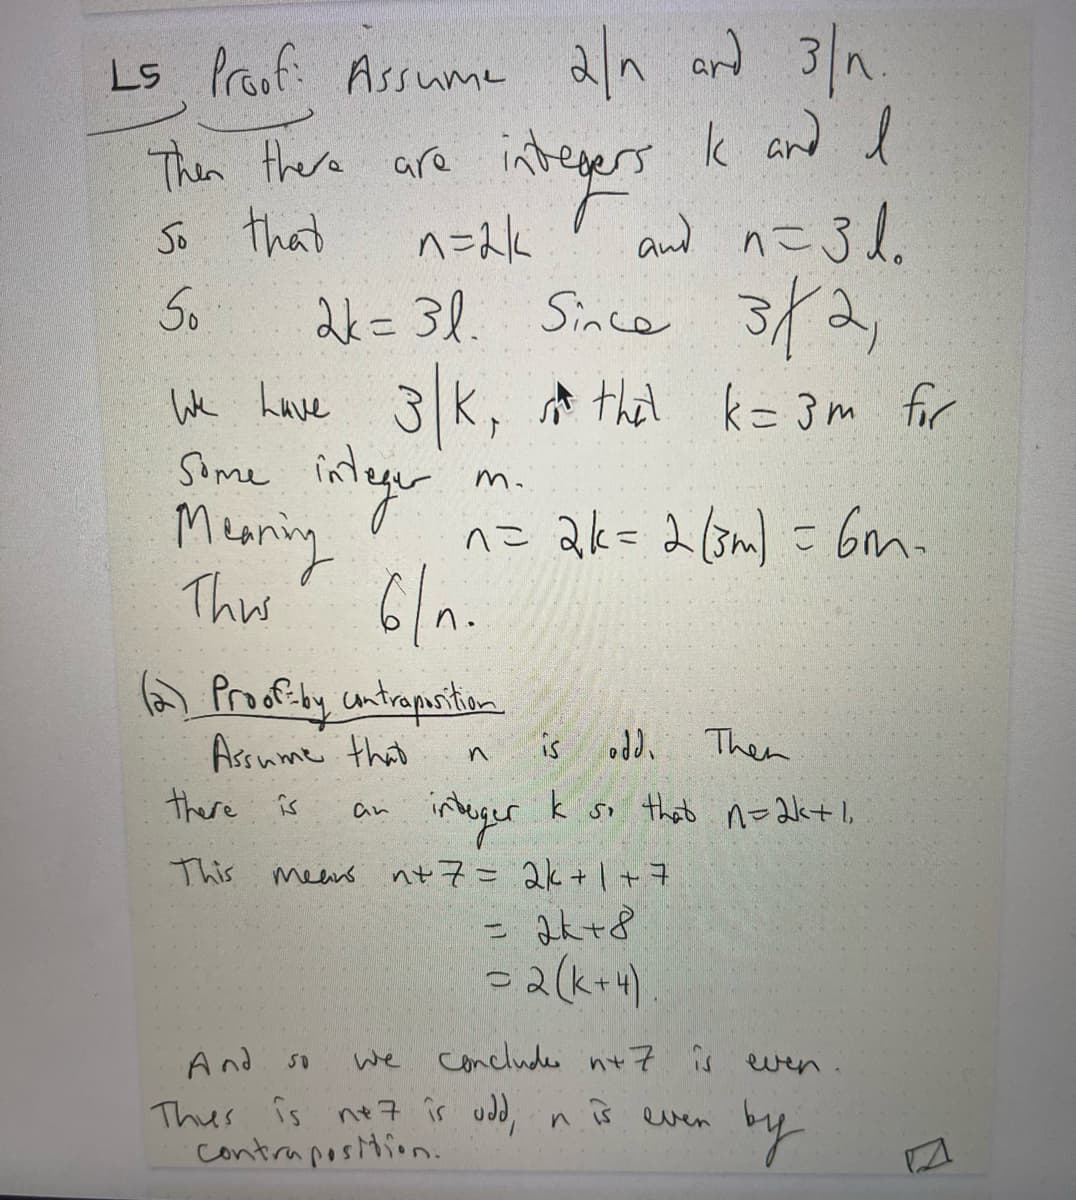 LS Proof: Assume 2|n and 3|n.
Then there are integers k and l
so that n=2k and n=3l.
So 2k=3l. Since 3∤2,
we have 3|k, that k=3m for
some integer m.
Meaning n= 2k= 2(3m) = 6m.
Thus 6|n.
(2) Proof: by contraposition
Assume that n is odd. Then
there is an integer k so that n=2k+1.
This means n+7= 2k+1+7
= 2k+8
=2(k+4).
And so we conclude n+7 is even.
Thus is n+7 is odd, n is even by
contraposition.